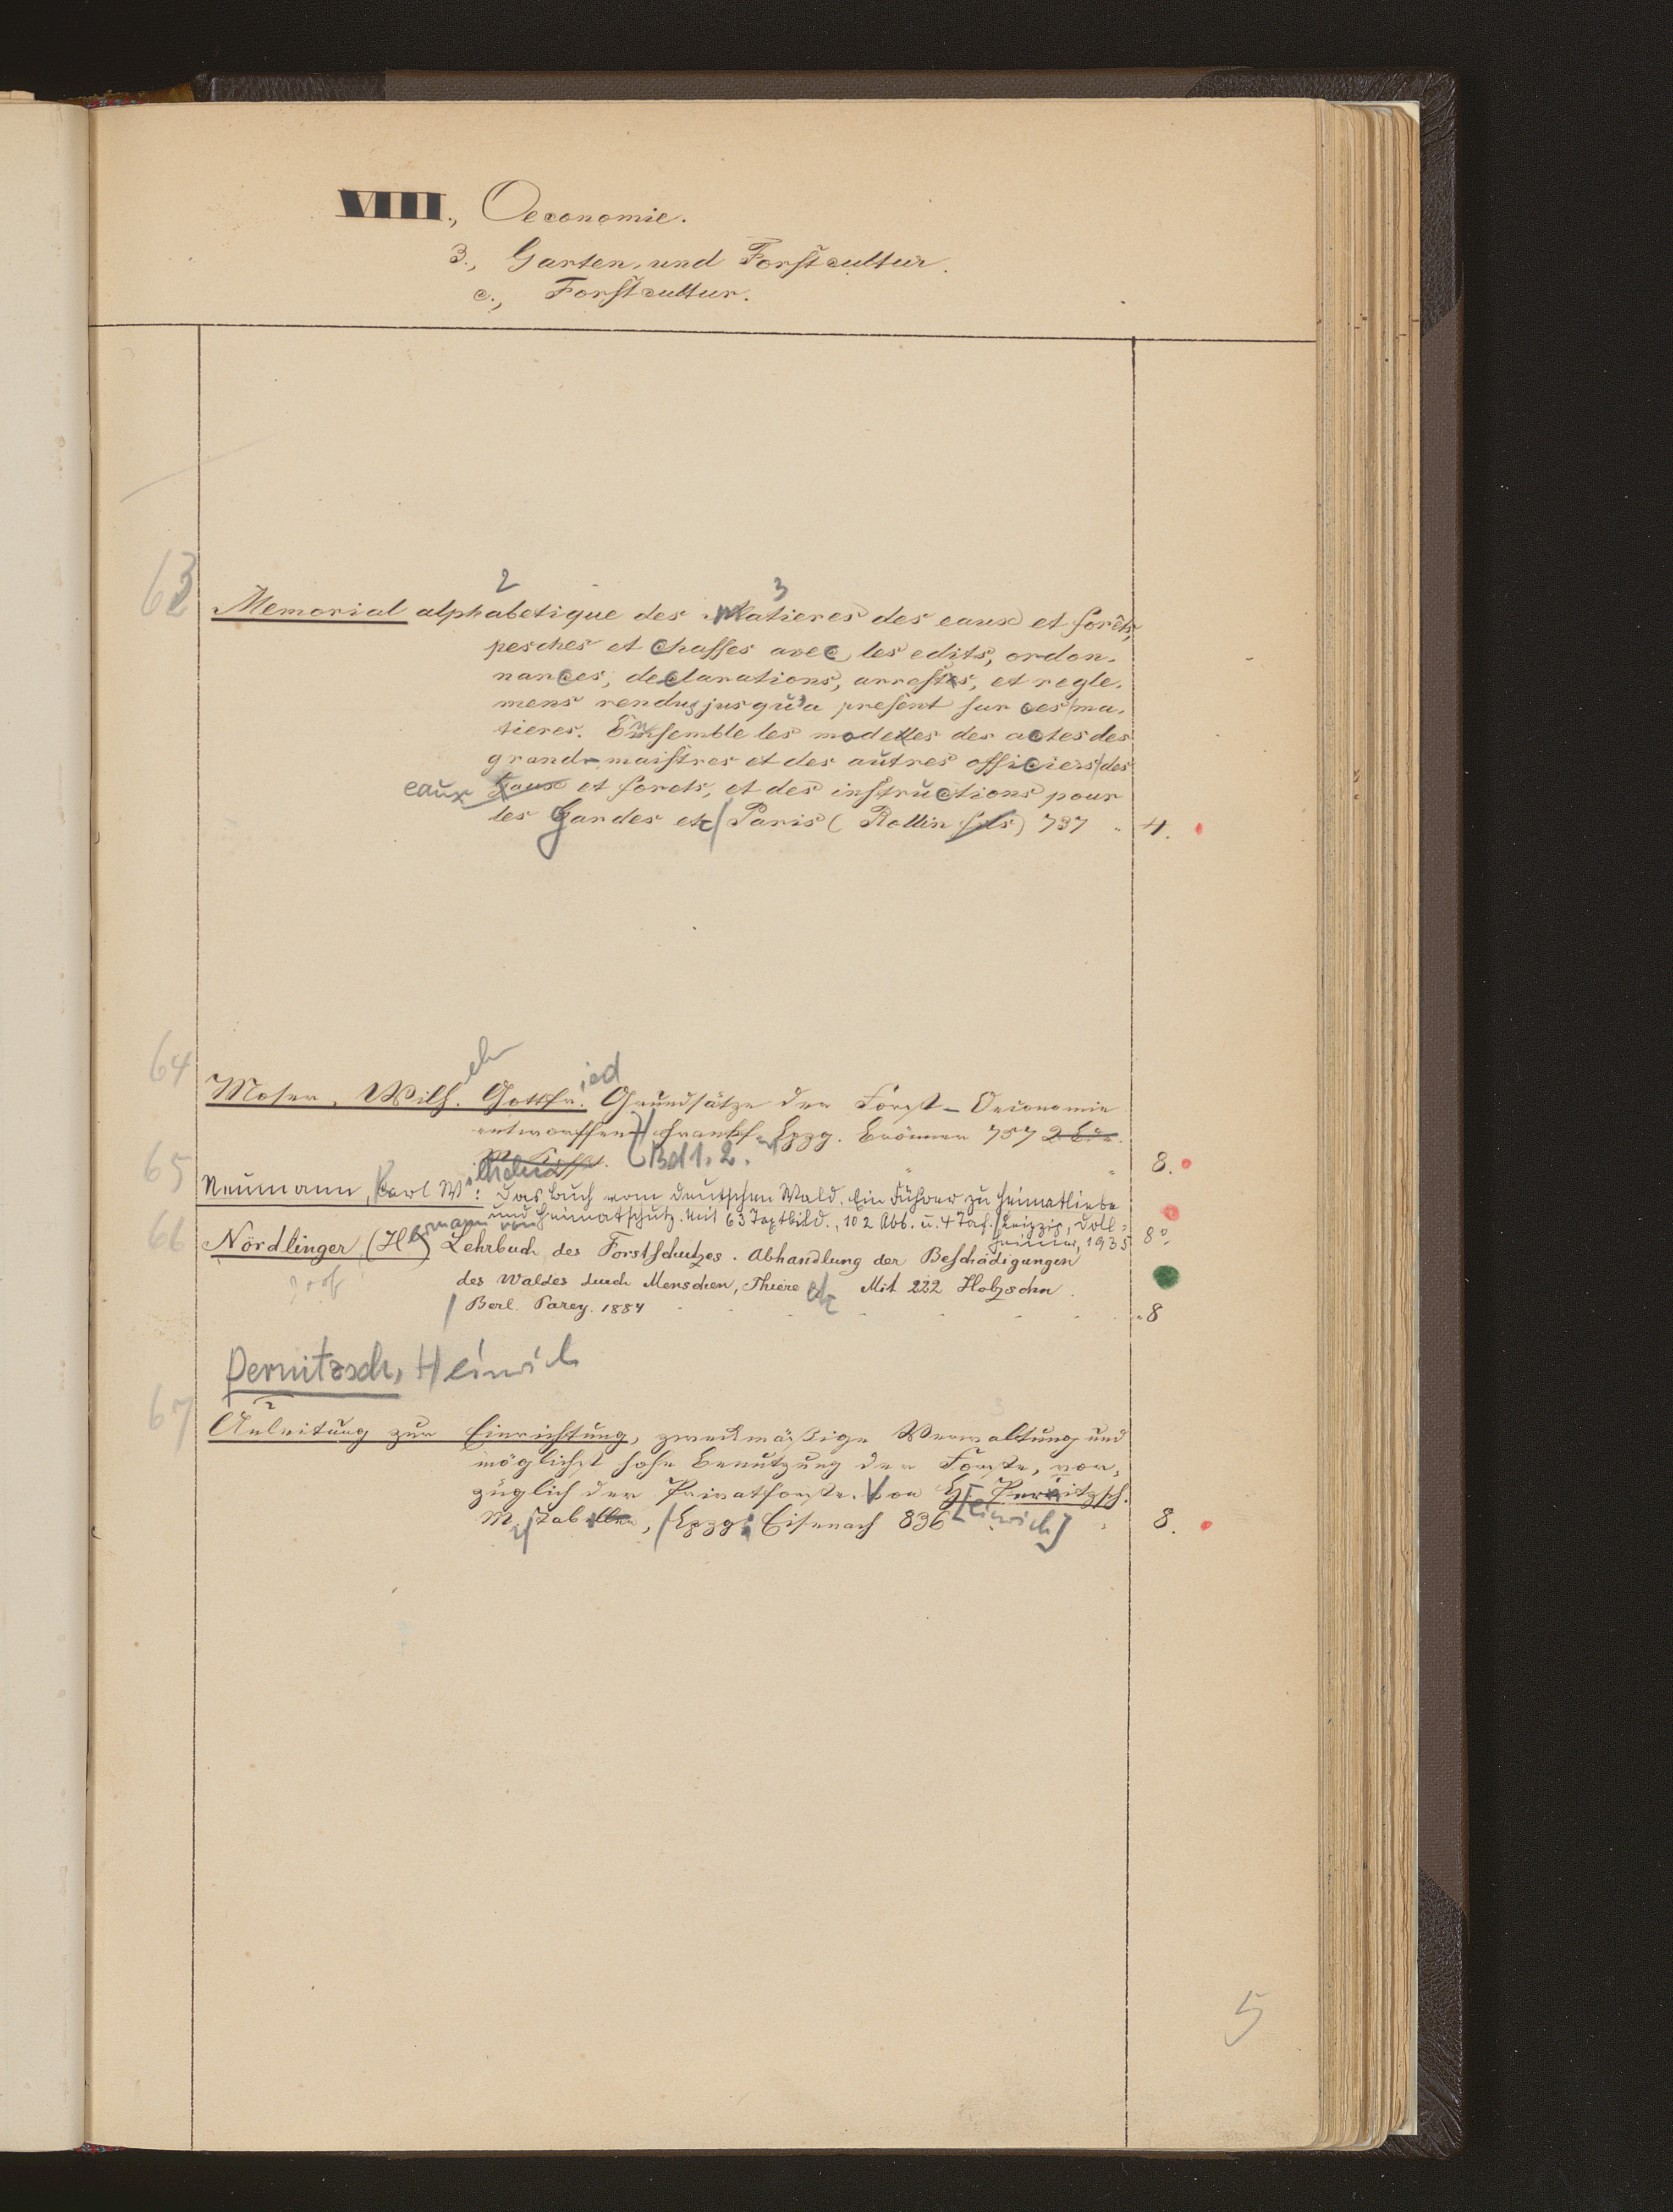 VIIII., Oeconomie.
3., Garten, und Forstcultur.
c., Forstcultur.
63
2 3
Memorial alphabetique des Matieres des eaux et forêts,
pesches et chasses avec les edits, ordon-
nances, declarations, arrests, et regle-
mens rendus jusqu'a present sur ces ma-
tieres. Ensemble les modeles des actes des
grand-maistres et des autres officiers des
eaux Eaux et forets, et des instructions pour
les Gardes etc Paris (Rollin fils) 737 " 4.
64
elm ied
Moser, Wilh. Gottfr. Grundsätze der Forst-Oeconomie
entworffen Frankf. Lpzg. Brönner 757 2 Bde.
Bd 1. 2. " " 8.
65
Neumann, Karl Wilhelm: Das Buch vom deutschen Wald. Ein Führer zu Heimatliebe
und Heimatschutz. Mit 63 Textbild., 102 Abb. u. 4 Taf. Leipzig, Doll-
heimer, 1935 8°
66
Nördlinger (Hermann von) Lehrbuch des Forstschutzes. Abhandlung der Beschädigungen
des Waldes durch Menschen, Thiere etc Mit 222 Holzschn.
Berl. Parey. 1884 " 8
Pernitzsch, Heinrich
67
2 3
Anleitung zur Einrichtung, zweckmäßige Verwaltung und
möglichst hohe Benutzung der Forste, vor-
züglich der Privatforste. Von H. Pernitzsch.
M. Tabellen, Lpzg. Eisenach 836 [einrich] " 8.
5